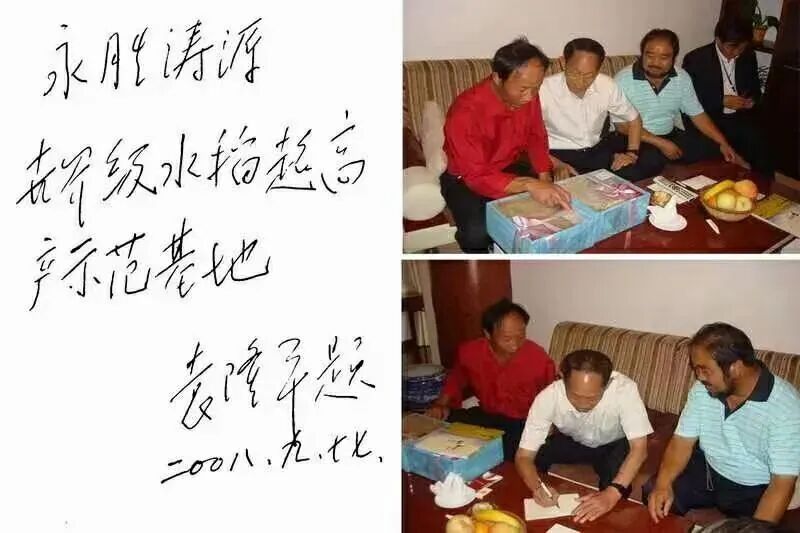 永胜涛源
世界级水稻超高
产示范基地
袁隆平题
二00八.九.十七.